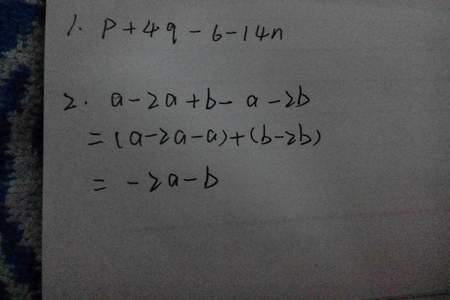 1. p+4q-6-14n
2. a-2a+b-a-2b
=(a-2a-a)+(b-2b)
=-2a-b